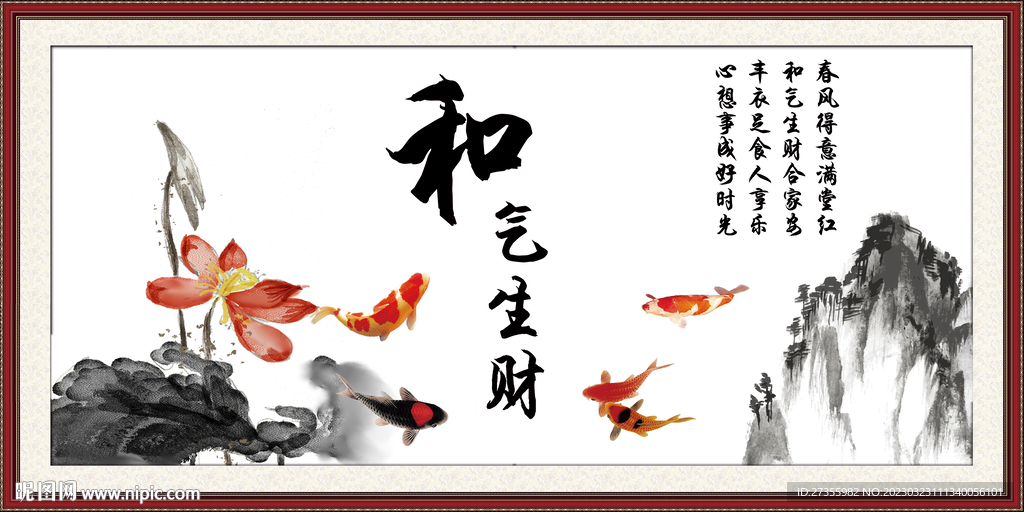 和气生财
春风得意满堂红
和气生财合家安
丰衣足食人享乐
心想事成好时光
昵图网 www.nipic.com
ID:27355982 NO:20230323111340056101